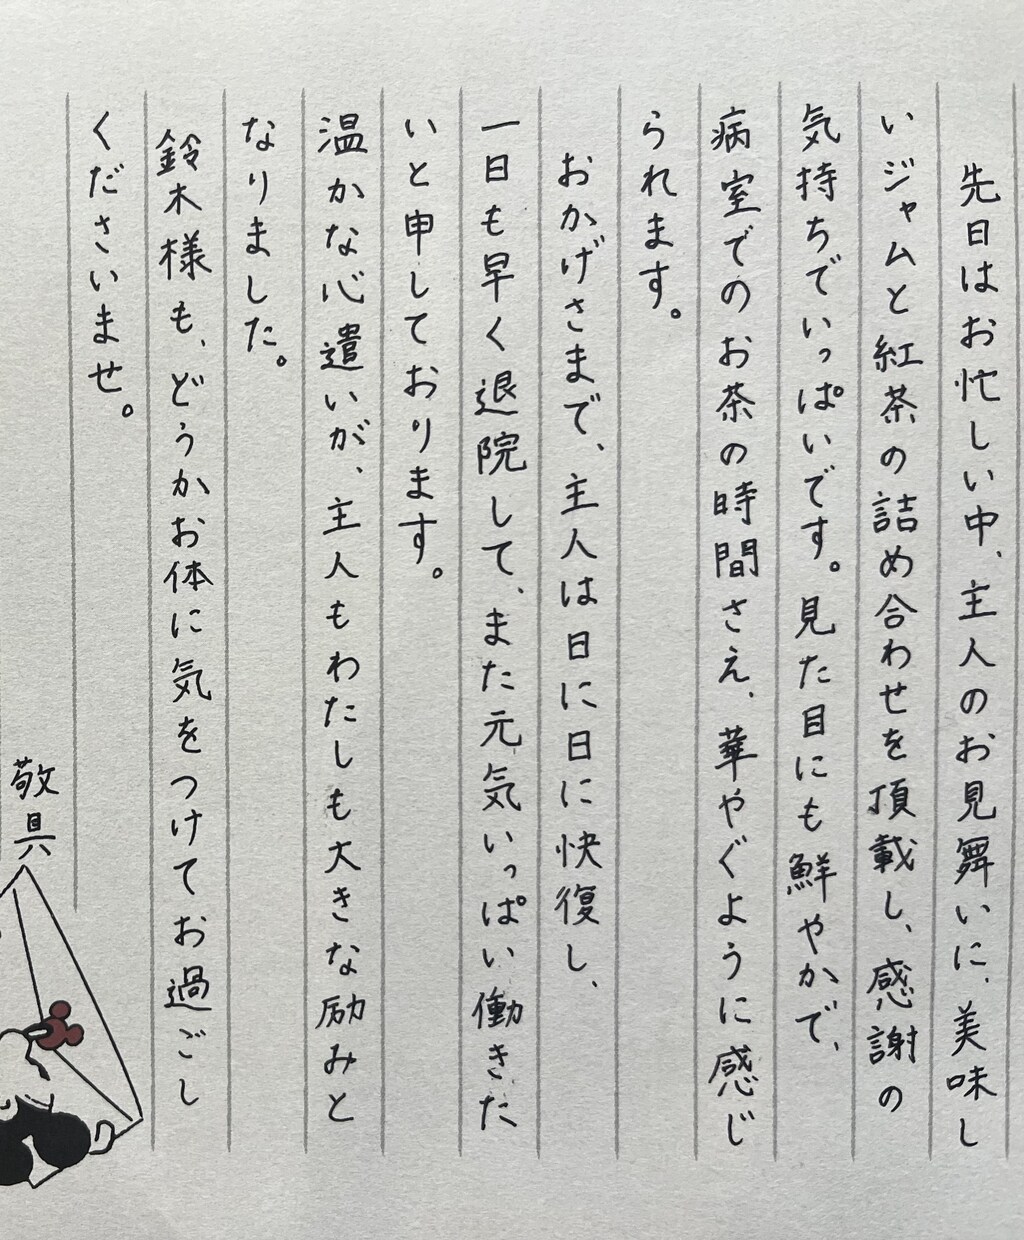 先日はお忙しい中、主人のお見舞いに、美味し
いジャムと紅茶の詰め合わせを頂載し、感謝の
気持ちでいっぱいです。見た目にも鮮やかで、
病室でのお茶の時間さえ、華やぐように感じ
られます。
おかげさまで、主人は日に日に快復し、
一日も早く退院して、また元気いっぱい働きた
いと申しております。
温かな心遣いが、主人もわたしも大きな励みと
なりました。
鈴木様も、どうかお体に気をつけてお過ごし
くださいませ。
敬具